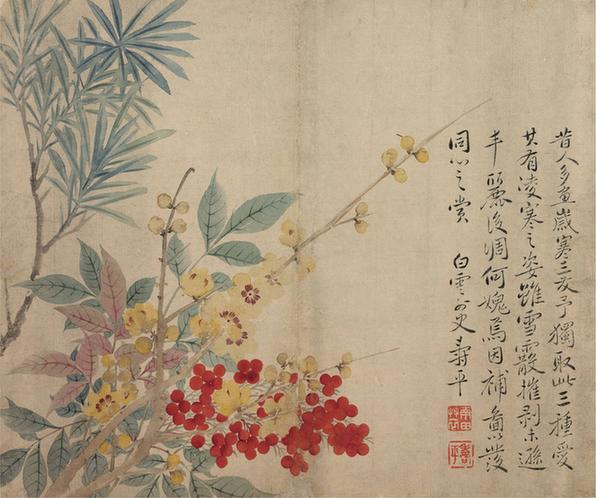 昔人多畫歲寒三友予獨取此三種愛
其有凌寒之姿雖雪霰摧剥未遜
丰麗後凋何媿焉因補圖以發
同心之賞 白雲外史壽平